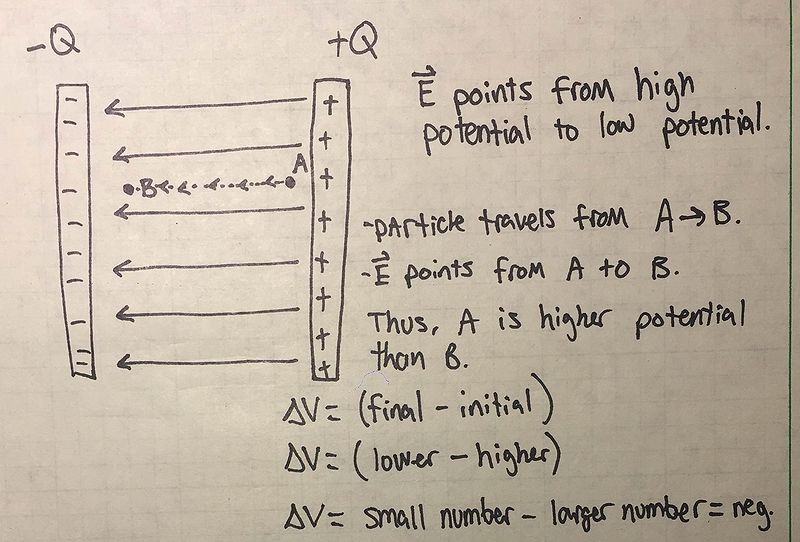 -Q +Q
E points from high
potential to low potential.
A
B
-particle travels from A→B.
-E points from A to B.
Thus, A is higher potential
than B.
ΔV= (final - initial)
ΔV= (lower - higher)
ΔV= small number - larger number = neg.